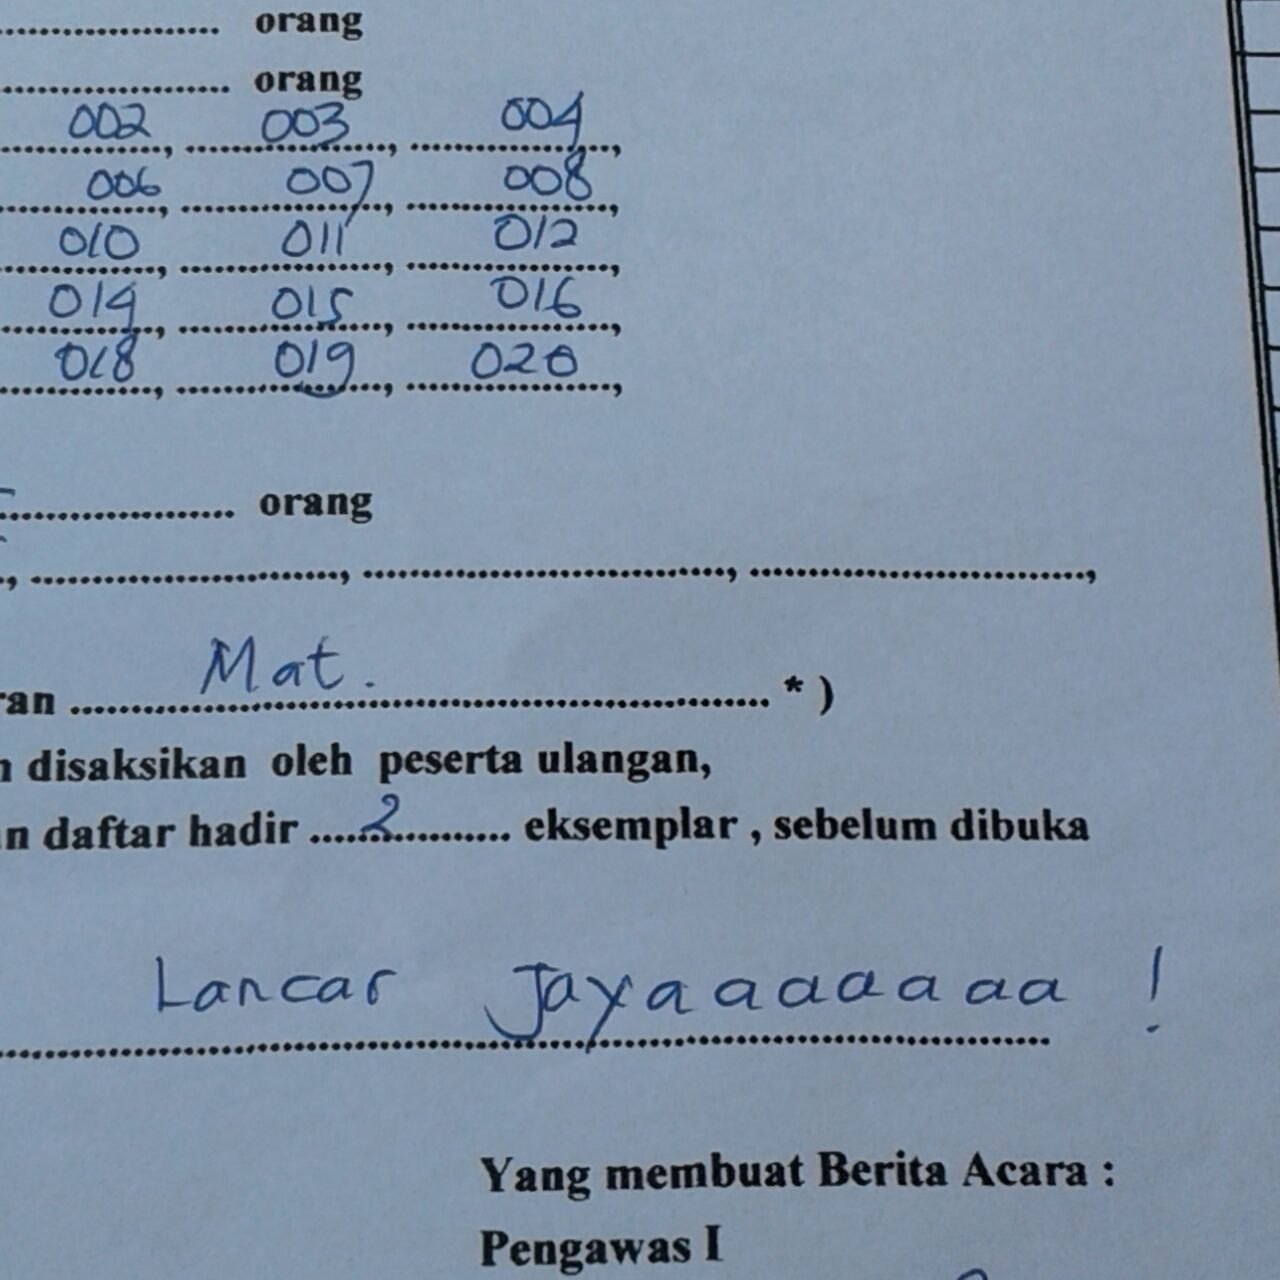 .................... orang
.................... orang
002, 003, 004,
006, 007, 008,
010, 011, 012,
014, 015, 016,
018, 019, 020,
.................... orang
, ...................., ...................., ....................,
ran Mat. * )
disaksikan oleh peserta ulangan,
n daftar hadir .....2.......... eksemplar , sebelum dibuka
Lancar Jayaaaaaaaa !
Yang membuat Berita Acara :
Pengawas I